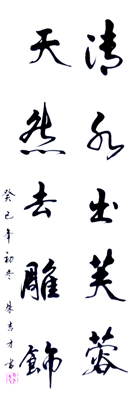 清水出芙蓉
天然去雕飾
癸巳年初冬 朱志才書